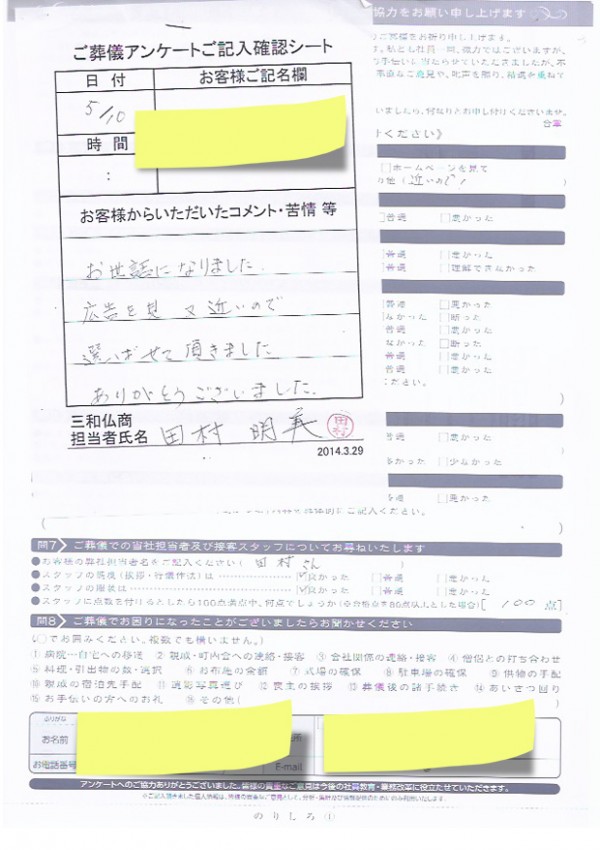 協力をお願い申し上げます
ご葬儀アンケートご記入確認シート
日付
お客様ご記名欄
5/10
時間
:
お客様からいただいたコメント・苦情 等
お世話になりました.
広告を見て近いので
選ばせて頂きました
ありがとうございました.
三和仏商
担当者氏名 田村 明美
2014.3.29
ください》
□ホームページを見て
(近いので!)
普通 □悪かった
普通 □悪かった
普通 □理解できなかった
普通 □悪かった
なかった □断った
普通 □悪かった
なかった □断った
普通 □悪かった
普通 □悪かった
ださい。
普通 □悪かった
多かった □少なかった
普通 □悪かった
問7 ご葬儀での当社担当者及び接客スタッフについてお尋ねいたします
●お客様の弊社担当者名をご記入ください ( 田村さん
●スタッフの挨拶(挨拶・行儀作法)は ☑良かった □普通 □悪かった
●スタッフの服装は ☑良かった □普通 □悪かった
●スタッフに点数を付けるとしたら100点満点中、何点でしょうか(※合格点を80点以上とした場合)[ 100 点]
問8 ご葬儀でお困りになったことがございましたらお聞かせください
(○でお囲みください。複数でも構いません。)
①病院―自宅への移送 ②親戚・町内会への連絡・接客 ③会社関係の連絡・接客 ④僧侶との打ち合わせ
⑤料理・引出物の数・選択 ⑥お布施の金額 ⑦式場の確保 ⑧駐車場の確保 ⑨供物の手配
⑩親戚の宿泊先手配 ⑪遺影写真選び ⑫喪主の挨拶 ⑬葬儀後の諸手続き ⑭あいさつ回り
⑮お手伝いの方へのお礼 ⑯その他(
ふりがな
お名前
お電話番号
E-mail
アンケートへのご協力ありがとうございました。皆様の貴重なご意見は今後の社員教育・業務改革に役立たせていただきます。
のりしろ ①